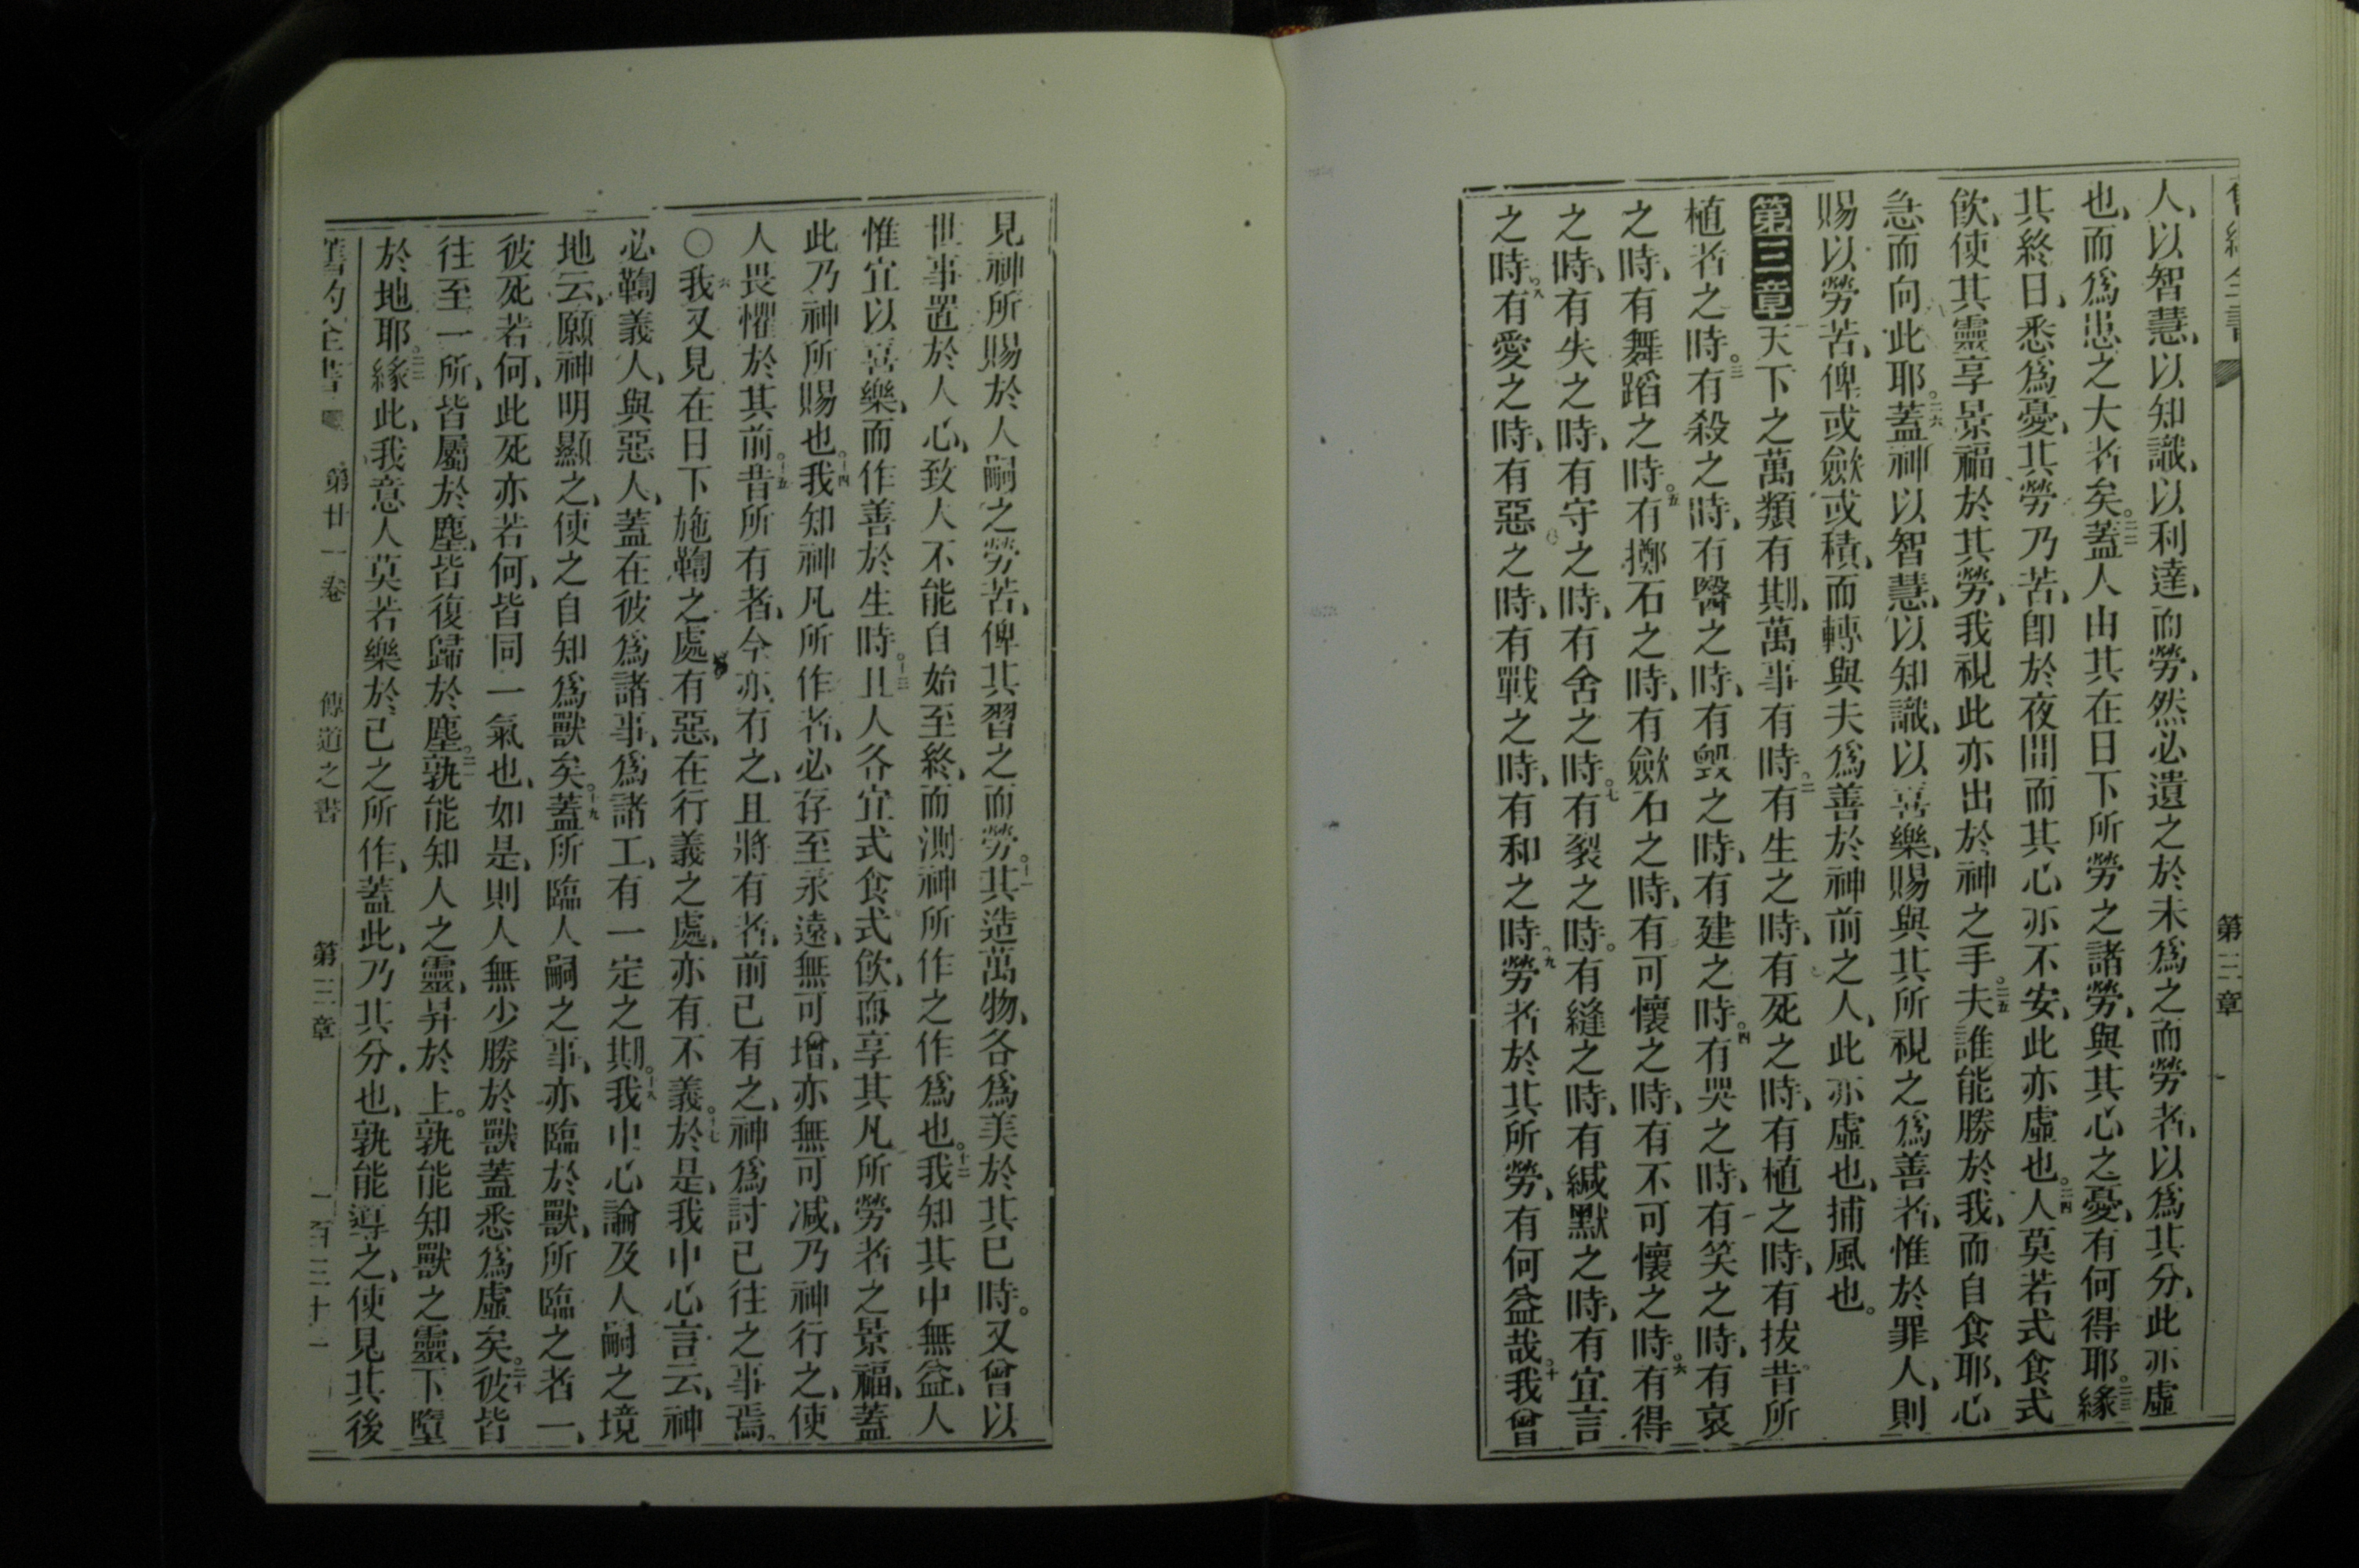 第三章
人、以智慧、以知識、以利達、而勞、然必遺之於未爲之而勞者、以爲其分、此亦虛
也、而爲患之大者矣。二二蓋人由其在日下所勞之諸勞、與其心之憂、有何得耶。二三緣
其終日、悉爲憂、其勞乃苦、卽於夜間而其心亦不安、此亦虛也。二四人莫若式食式
飮、使其靈享景福於其勞、我視此亦出於神之手。二五夫誰能勝於我、而自食耶、心
急而向此耶。二六蓋神以智慧、以知識、以喜樂、賜與其所視之爲善者、惟於罪人、則
賜以勞苦、俾或歛或積、而轉與夫爲善於神前之人、此亦虛也、捕風也。
第三章 天下之萬類有期、萬事有時。二有生之時、有死之時、有植之時、有拔昔所
植者之時。三有殺之時、有醫之時、有毁之時、有建之時。四有哭之時、有笑之時、有哀
之時、有舞蹈之時。五有擲石之時、有歛石之時、有可懷之時、有不可懷之時。六有得
之時、有失之時、有守之時、有舍之時。七有裂之時。有縫之時、有緘默之時、有宜言
之時。八有愛之時、有惡之時、有戰之時、有和之時。九勞者於其所勞、有何益哉。十我曾
見神所賜於人嗣之勞苦、俾其習之而勞。十一其造萬物、各爲美於其已時。又曾以
世事置於人心、致人不能自始至終、而測神所作之作爲也。十二我知其中無益、人
惟宜以喜樂、而作善於生時。十三且人各宜式食式飮、而享其凡所勞者之景福、蓋
此乃神所賜也。十四我知神凡所作者、必存至永遠、無可增、亦無可減、乃神行之、使
人畏懼於其前。十五昔所有者、今亦有之、且將有者、前已有之、神爲討已往之事焉。
○六我又見在日下施鞫之處、有惡、在行義之處、亦有不義。十七於是、我中心言云、神
必鞫義人、與惡人、蓋在彼爲諸事、爲諸工、有一定之期。十八我中心論及人嗣之境
地云、願神明顯之、使之自知爲獸矣。十九蓋所臨人嗣之事、亦臨於獸、所臨之者一、
彼死若何、此死亦若何、皆同一氣也、如是、則人無少勝於獸蓋悉爲虛矣。二十彼皆
往至一所、皆屬於塵、皆復歸於塵。二一孰能知人之靈、昇於上。孰能知獸之靈、下墮
於地耶。二二緣此、我意人莫若樂於己之所作、蓋此、乃其分也、孰能導之、使見其後
舊約全書 第廿一卷 傳道之書 第三章 一百三十一